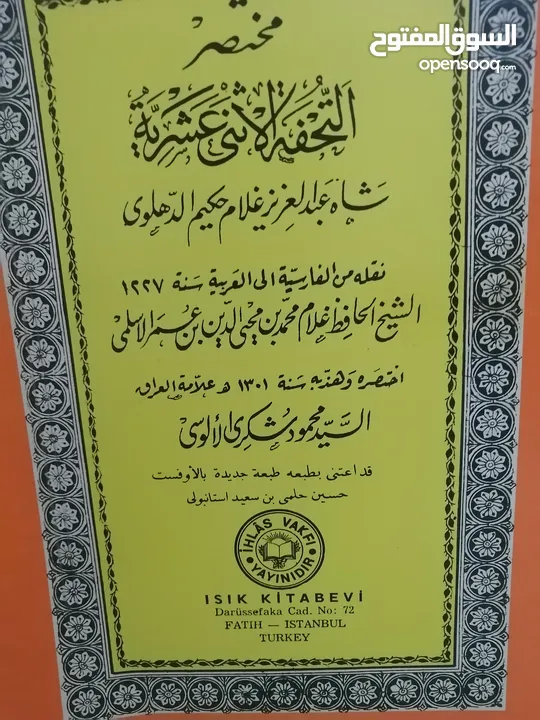 السوق المفتوح
opensooq.com
مختصر
التحفة الاثنى عشرية
شاه عبد العزيز غلام حكيم الدهلوى
نقله من الفارسية الى العربية سنة ١٢٢٧
الشيخ الحافظ غلام محمد بن محيى الدين بن عمر الاسلمى
اختصره وهذبه سنة ١٣٠١ هـ علامة العراق
السيد محمود شكرى الألوسى
قد اعتنى بطبعه طبعة جديدة بالأوفست
حسين حلمى بن سعيد استانبولى
İHLÂS VAKFI
YAYINIDIR
ISIK KİTABEVİ
Darüssefaka Cad. No: 72
FATIH — ISTANBUL
TURKEY